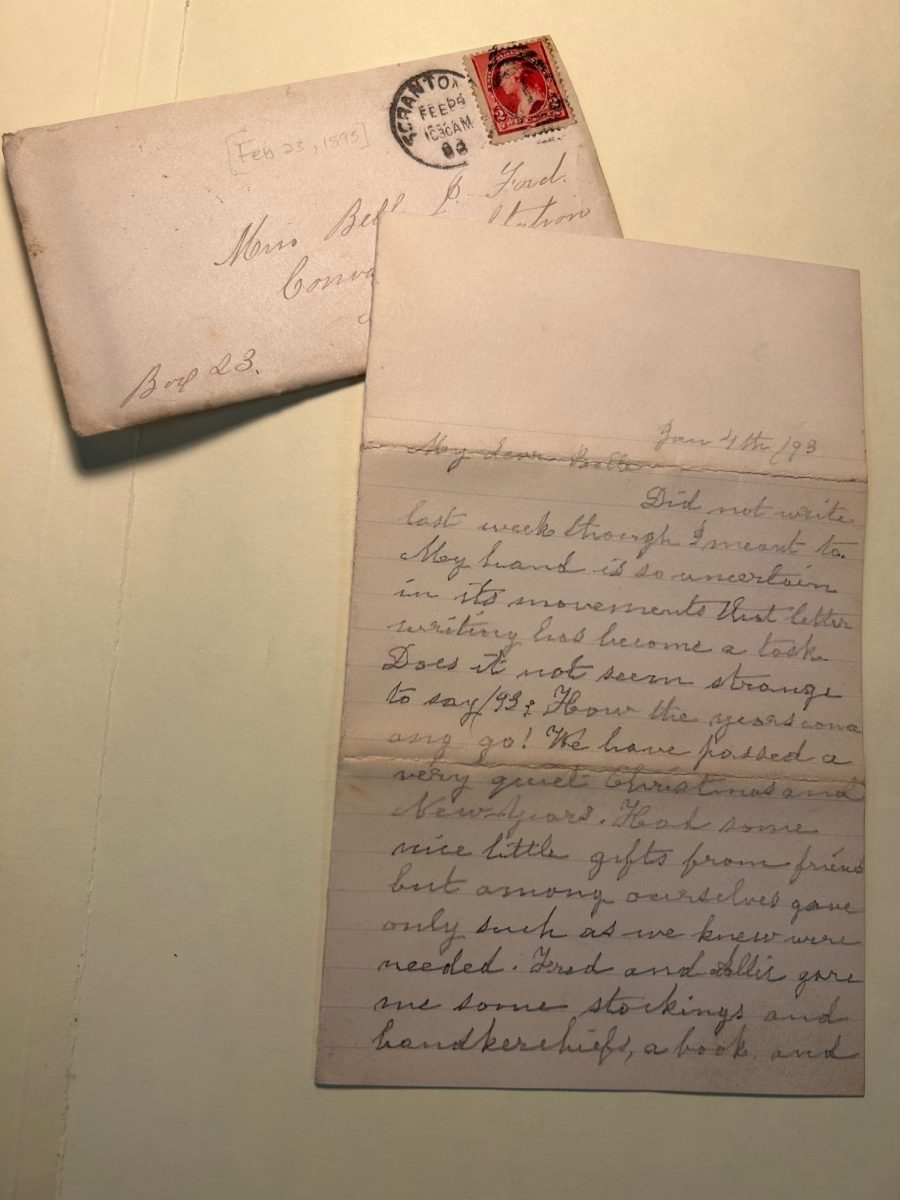 SCRANTON
FEB
1030AM
93
2 2
[Feb 23, 1893]
Miss Bell P. Ford.
Station
Box 23.
Jan 4th /93
My dear Belle
Did not write
last week though I meant to.
My hand is so uncertain
in its movements that letter
writing has become a task
Does it not seem strange
to say /93? How the years come
and go! We have passed a
very quiet Christmas and
New-Years. Had some
nice little gifts from friend
but among ourselves gave
only such as we knew were
needed. Fred and Allie gave
me some stockings and
handkerchiefs, a book and